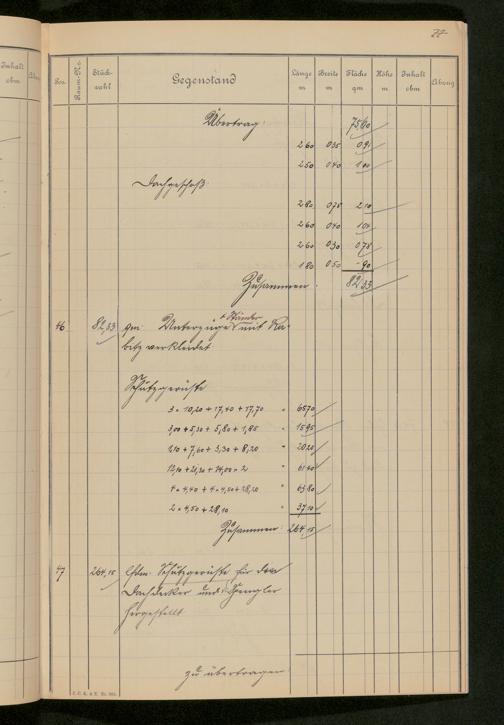 77
Inhalt cbm Abzug Pos. Raum-No. Stückzahl Gegenstand Länge m Breite m Fläche qm Höhe m Inhalt cbm Abzug
Übertrag: 7560
260 035 091
250 040 100
Dachgeschoß:
280 075 210
260 040 104
260 030 078
180 050 -90
Zusammen: 8233
46 82,33 qm Unterzüge + Ständer mit Ra-
bitz verkleidet
Schutzgerüste
3 × 10,20 + 17,40 + 17,70 = 6570
3,00 + 5,30 + 5,80 + 1,85 = 1595
1,10 + 7,60 + 3,30 + 8,20 = 2020
12,10 + 21,30 + 14,00 × 2 = 6140
4 × 4,40 + 4 × 4,50 + 28,20 = 6380
2 × 4,50 + 28,10 = 3710
Zusammen: 264,15
47 264,15 lfdm Schutzgerüste für den
Dachdecker und Spengler
hergestellt
zu übertragen